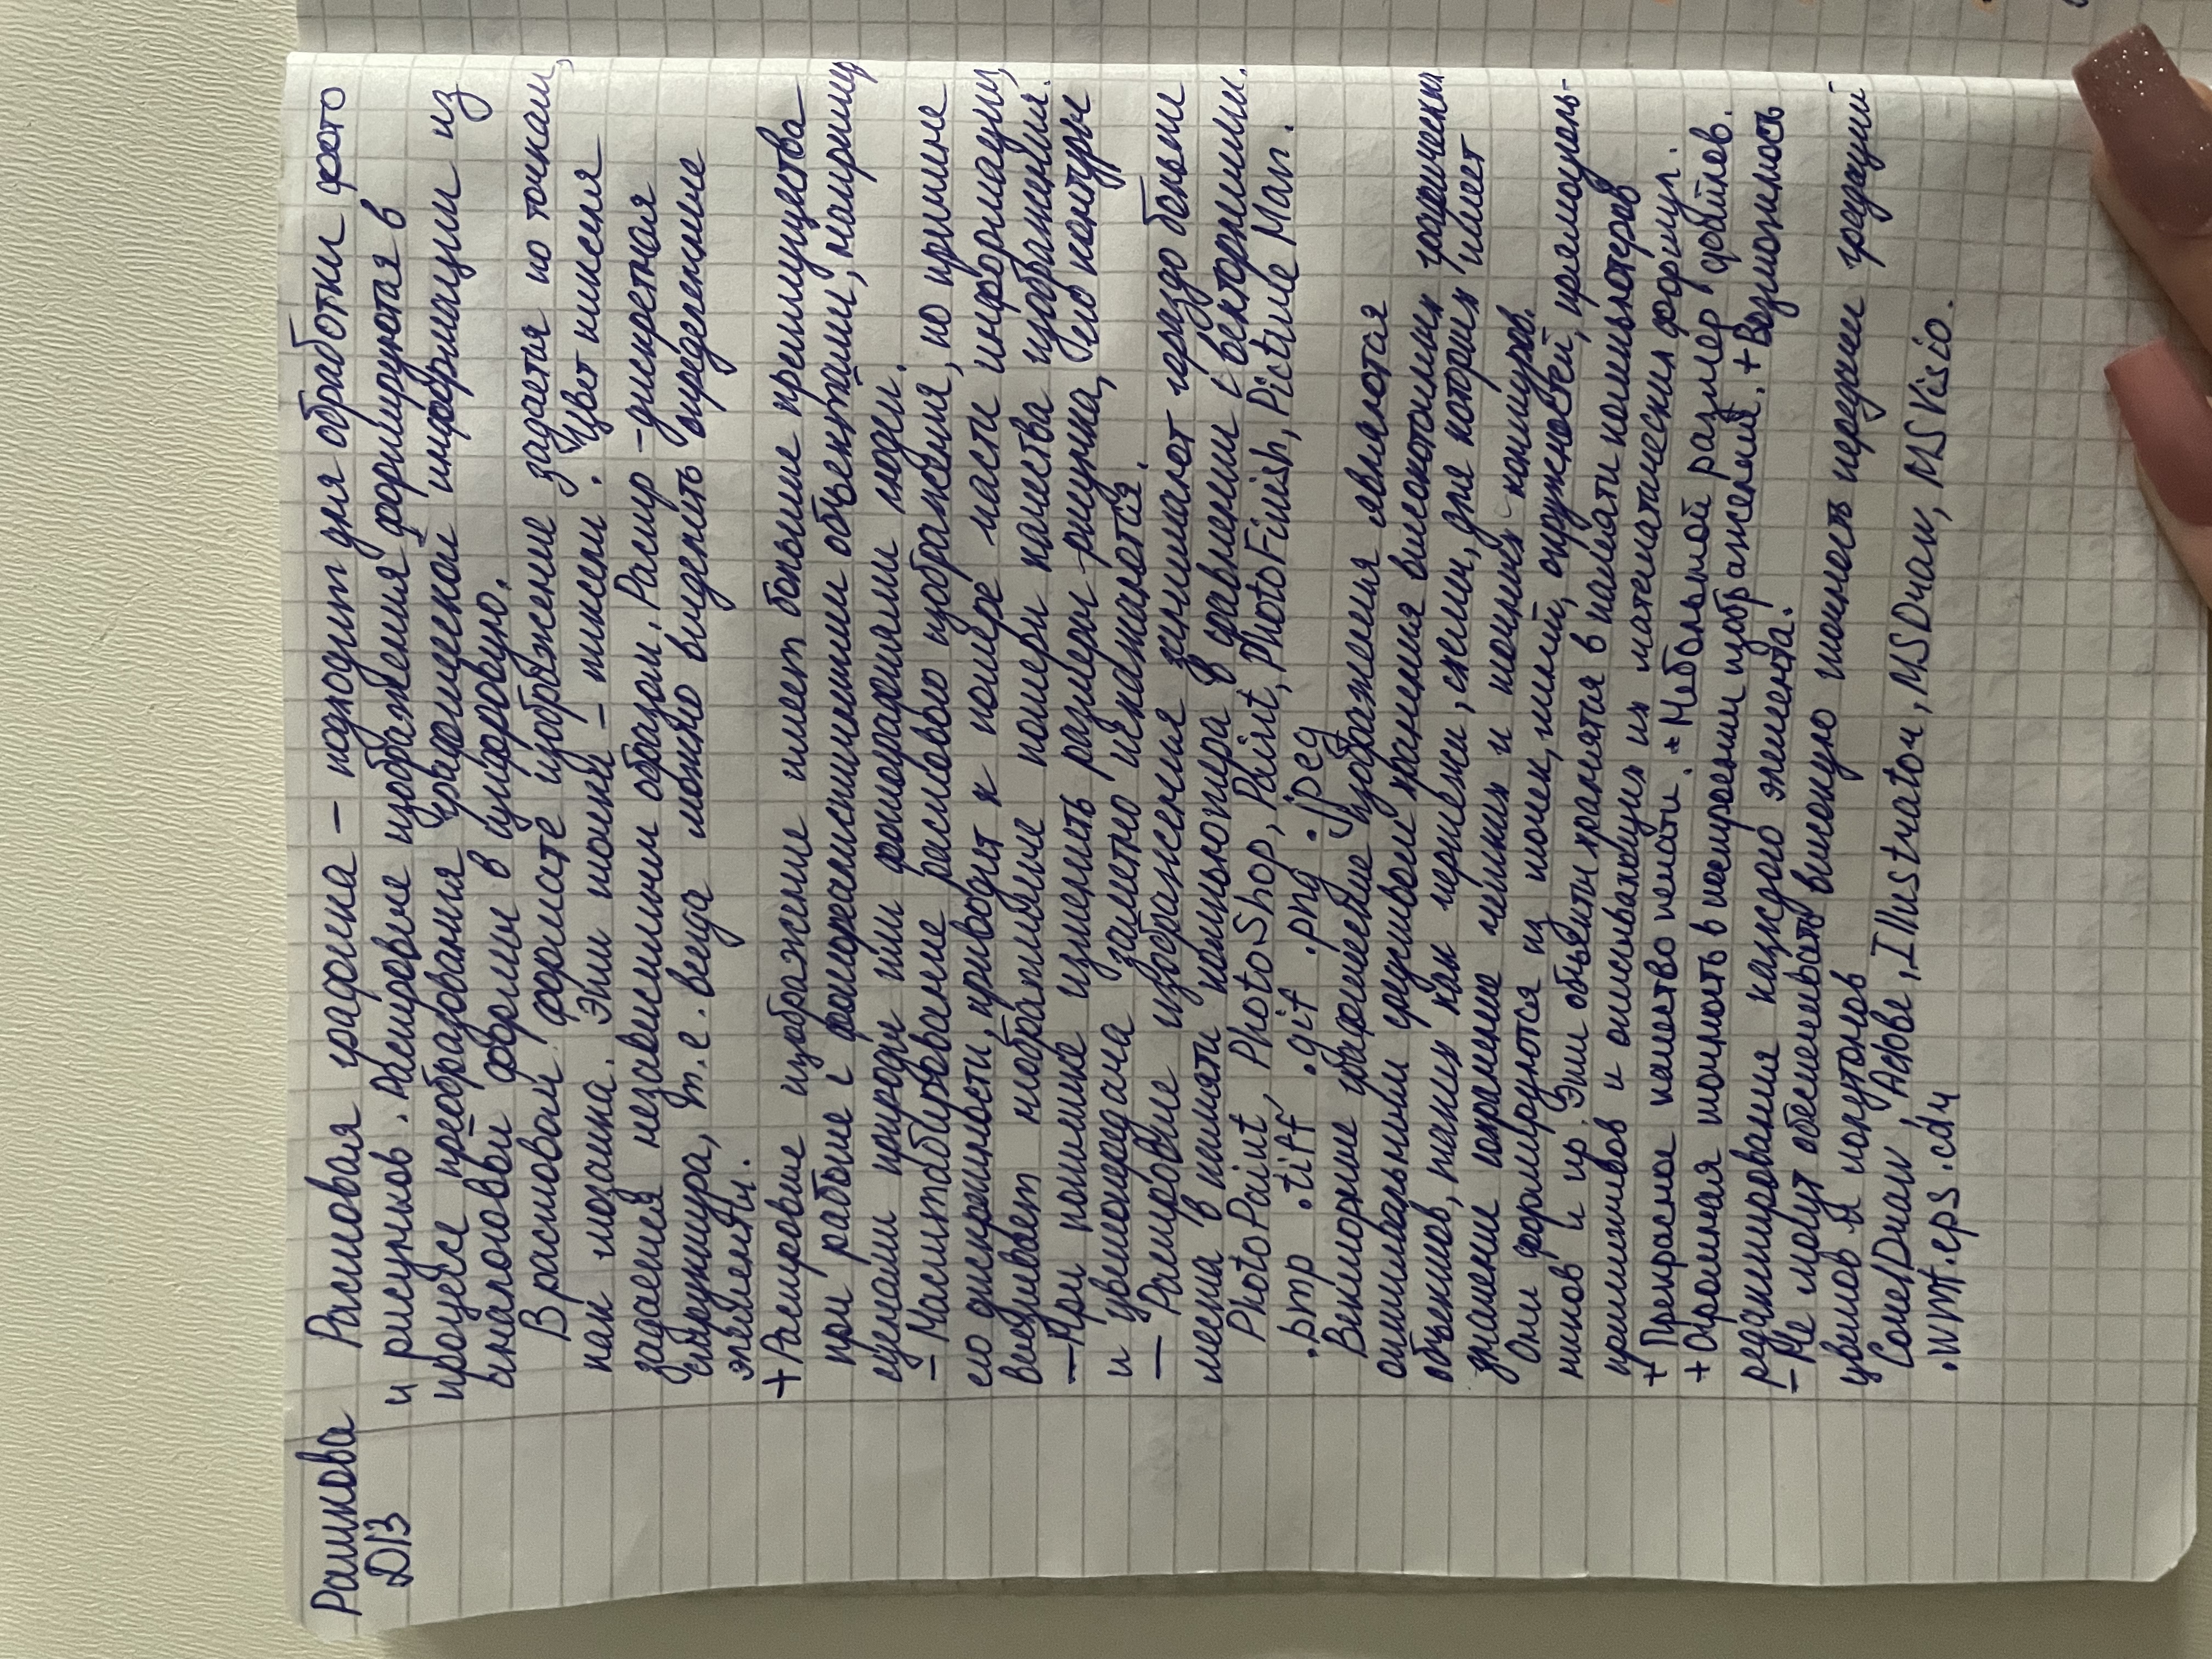 Рашкова
Д13
Растровая графика – подходит для обработки фото
и рисунков. Растровые изображения формируются в
процессе преобразования графической информации из
аналоговой формы в цифровую.
В растровом формате изображение задается по точкам,
как мозаика. Эти точки – пиксели. Цвет пикселя
задается независимым образом. Растр – дискретная
структура, т.е. всегда можно выделить определенные
элементы.
+ Растровые изображение имеет большие преимущества
при работе с фотореалистичными объектами, например
сценами природы или фотографиями людей.
– Масштабирование растрового изображения, по причине
его дискретности, приводит к потере части информации,
вызывает необратимые потери качества изображения.
– При попытке изменить размеры рисунка, его контуры
и цветопередача заметно искажаются.
– Растровые изображения занимают гораздо больше
места в памяти компьютера в сравнении с векторными.
PhotoPaint, PhotoShop, Paint, PhotoFinish, Picture Man.
.bmp .tiff .gif .png .jpeg
Векторные графические изображения являются
оптимальными средствами хранения высокоточных графических
объектов, таких как чертежи, схемы, для которых имеет
значение сохранение четких и точных контуров.
Они формируются из точек, линий, окружностей, прямоуголь-
ников и др. Эти объекты хранятся в памяти компьютеров
примитивов и описывающих их математических формул.
+ Прекрасное качество печати. + Небольшой размер файлов.
+ Огромная точность в построении изображений. + Возможность
редактирования каждого элемента.
– Не могут обеспечивать высокую точность передачи градаций
цветов и полутонов
CorelDraw, Adobe, Illustrator, MSDraw, MSVisio.
.wmf .eps .cdr